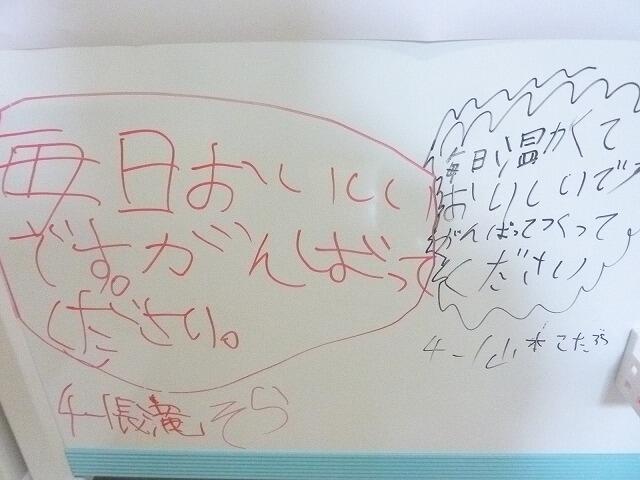 毎日おいしい
です。がんばって
ください。
4-1長滝そら
毎日温かくて
おいしいです
がんばってつくって
ください
4-1山本こたろう